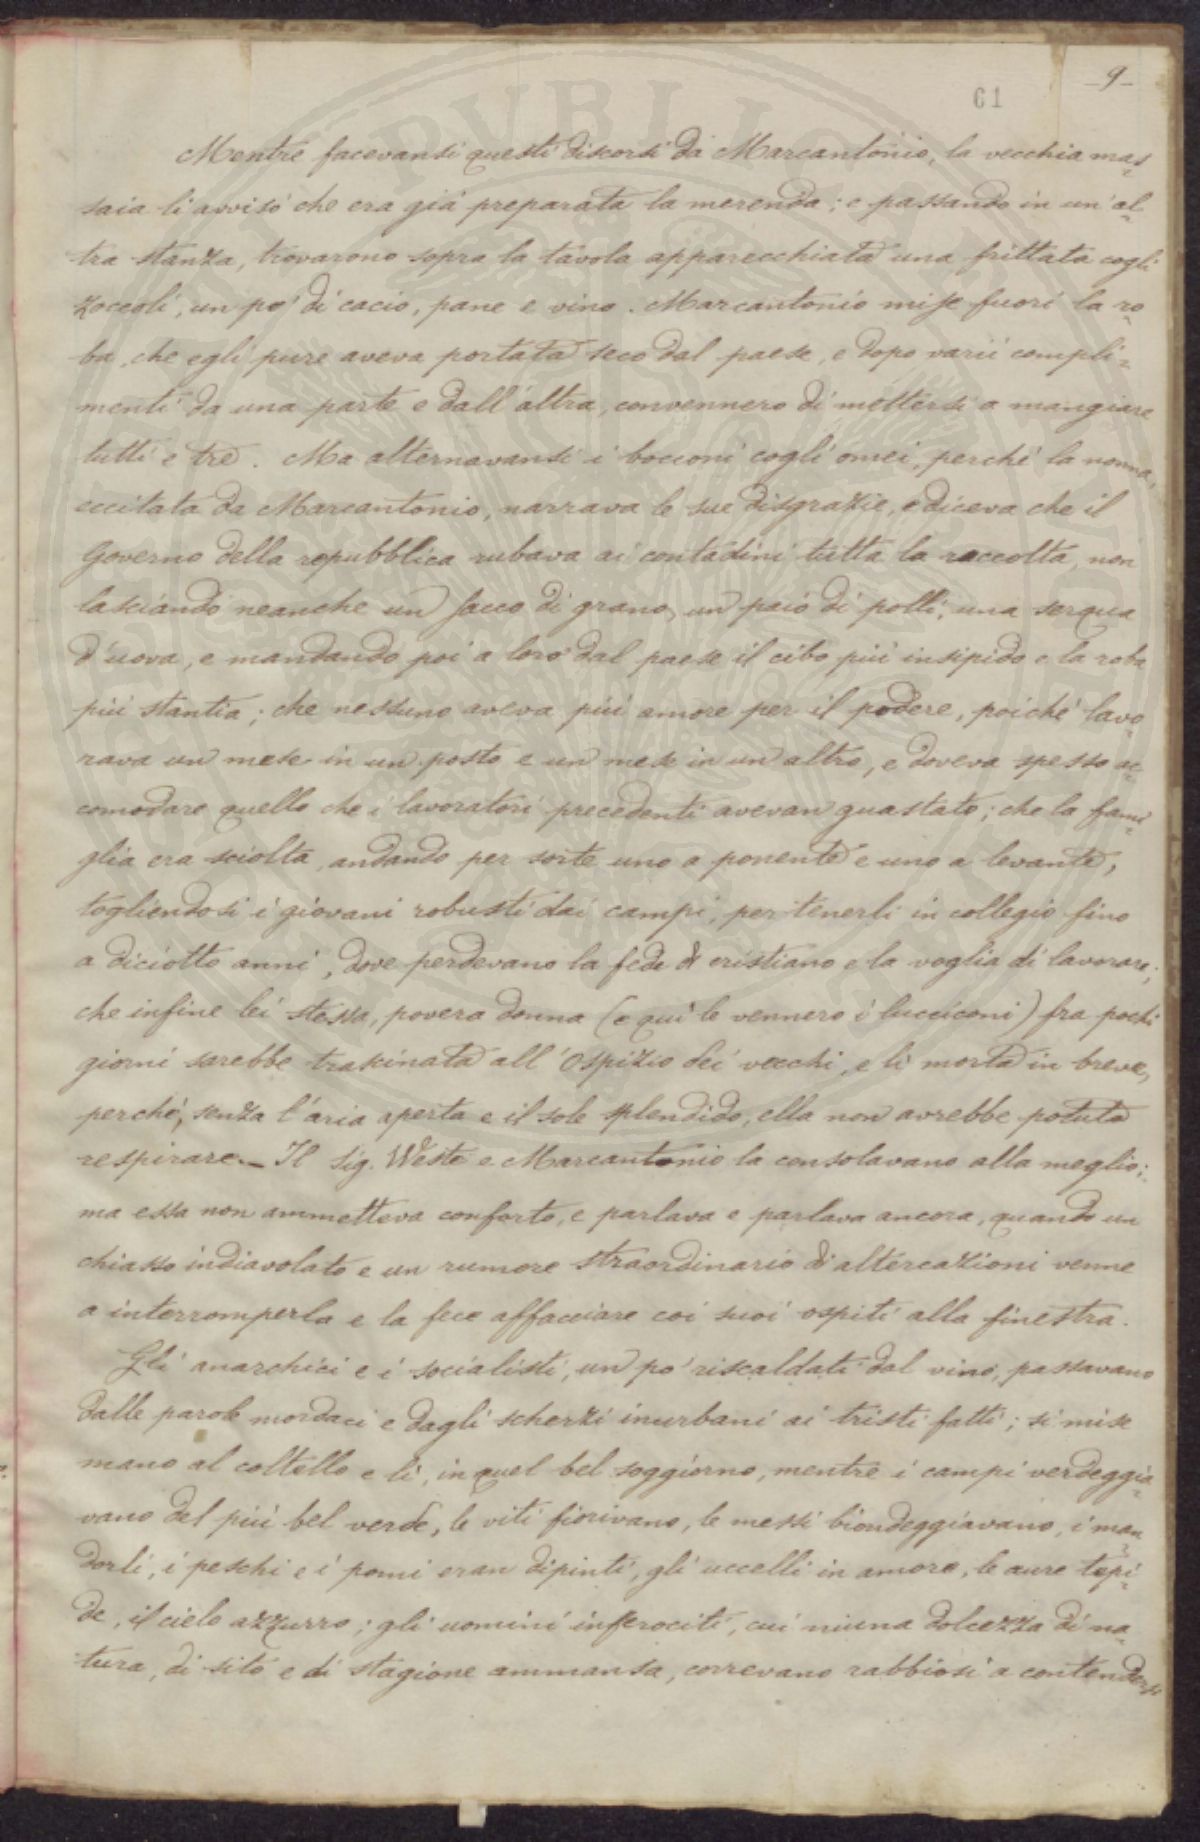 61
-9-
Mentre facevansi questi discorsi da Marcantonio, la vecchia mas=
saia li avvisò che era già preparata la merenda; e passando in un'al=
tra stanza, trovarono sopra la tavola apparecchiata una frittata cogli
zoccoli, un po' di cacio, pane e vino. Marcantonio mise fuori la ro=
ba, che egli pure aveva portata seco dal paese, e dopo varii compli=
menti da una parte e dall'altra, convennero di mettersi a mangiare
tutti e tre. Ma alternavansi i bocconi cogli omei, perchè la nonna,
eccitata da Marcantonio, narrava le sue disgrazie, e diceva che il
Governo della repubblica rubava ai contadini tutta la raccolta, non
lasciando neanche un sacco di grano, un paio di polli, una serqua
d'uova, e mandando poi a loro dal paese il cibo più insipido e la roba
più stantia; che nessuno aveva più amore per il podere, poichè lavo=
rava un mese in un posto e un mese in un altro, e doveva spesso ac=
comodare quello che i lavoratori precedenti avevan guastato; che la fami=
glia era sciolta, andando per sorte uno a ponente e uno a levante,
togliendosi i giovani robusti dai campi, per tenerli in collegio fino
a diciotto anni, dove perdevano la fede di cristiano e la voglia di lavorare;
che infine lei stessa, povera donna (e qui le vennero i lucciconi) fra pochi
giorni sarebbe trascinata all'Ospizio dei vecchi, e lì morta in breve,
perchè, senza l'aria aperta e il sole splendido, ella non avrebbe potuto
respirare. — Il sig. Weste e Marcantonio la consolavano alla meglio;
ma essa non ammetteva conforto, e parlava e parlava ancora, quando un
chiasso indiavolato e un rumore straordinario di altercazioni venne
a interromperla e la fece affacciare coi suoi ospiti alla finestra.
Gli anarchici e i socialisti, un po' riscaldati dal vino, passavano
dalle parole mordaci e dagli scherzi inurbani ai tristi fatti; si mise
mano al coltello e lì, in quel bel soggiorno, mentre i campi verdeggia=
vano del più bel verde, le viti fiorivano, le messi biondeggiavano, i man=
dorli, i peschi e i pomi eran dipinti, gli uccelli in amore, le aure tepi=
de, il cielo azzurro; gli uomini inferociti, cui niuna dolcezza di na=
tura, di sito e di stagione ammansa, correvano rabbiosi a contendersi